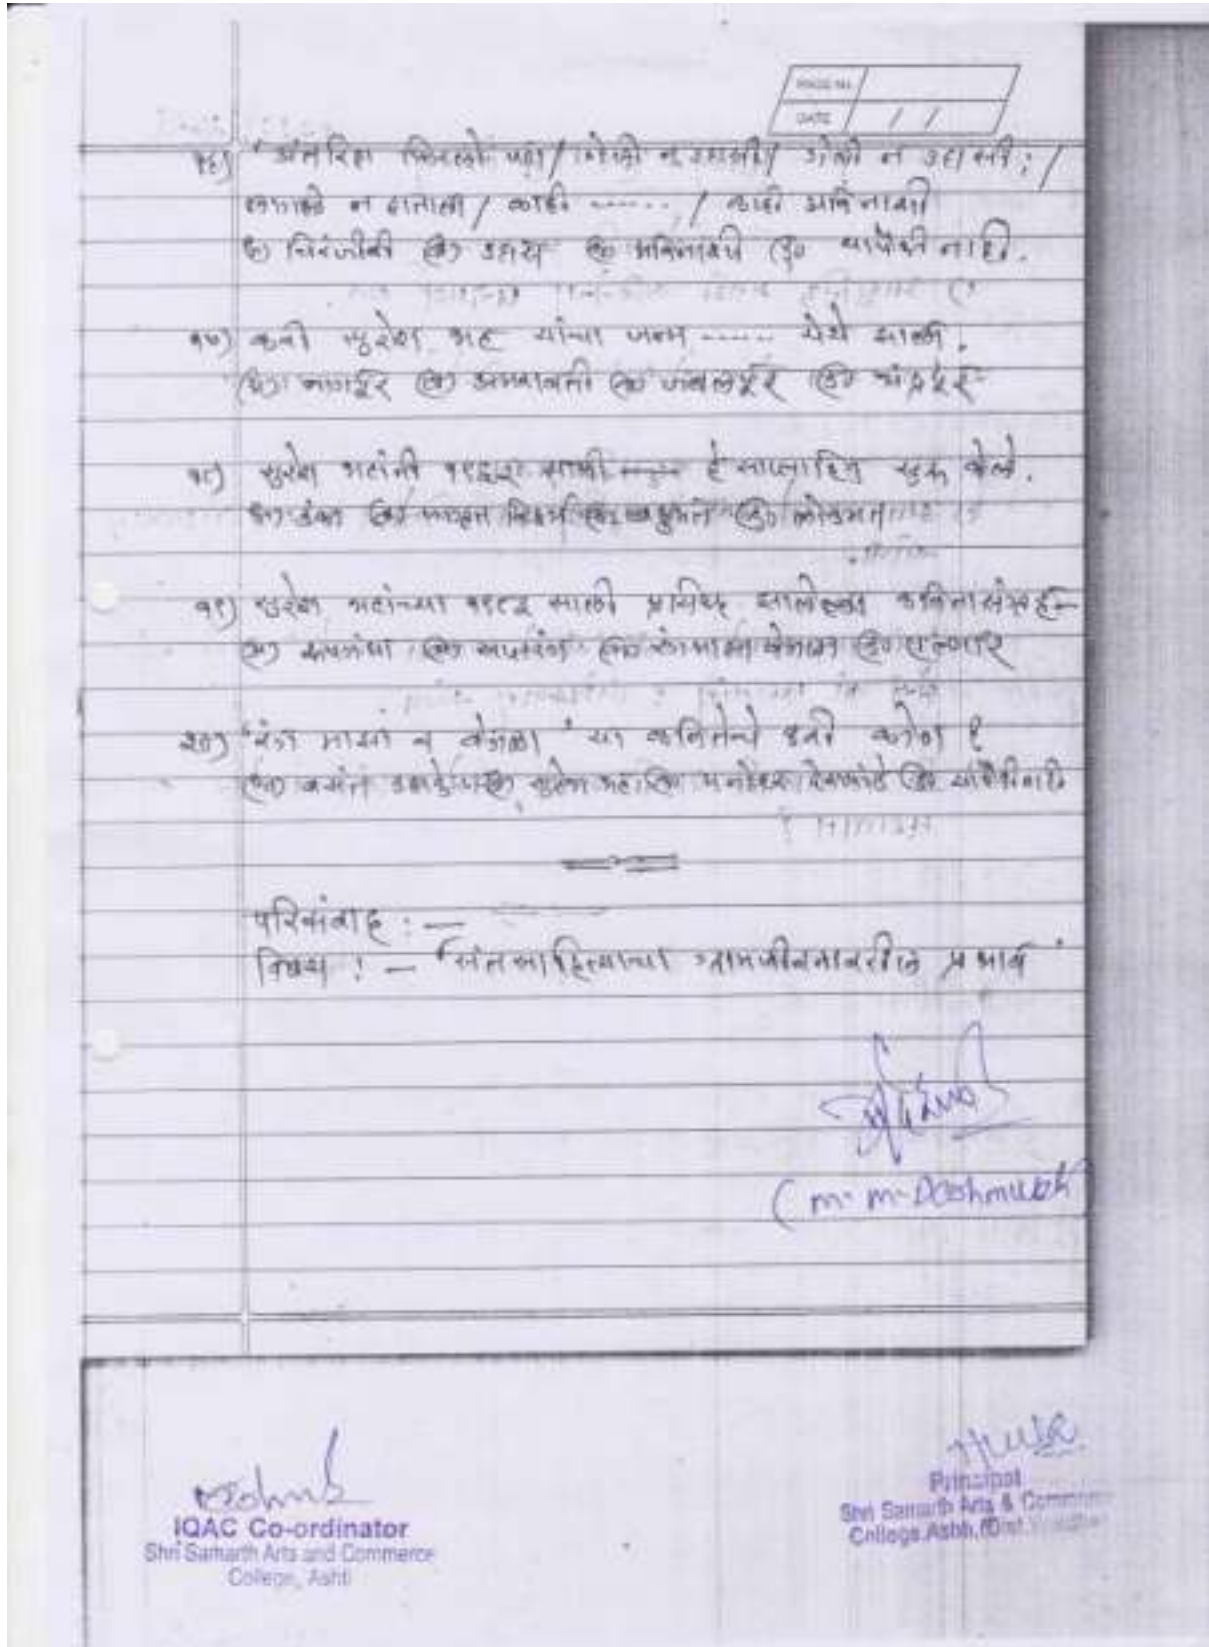 PAGE No.
DATE / /
१६) 'अंतरिक्ष फिरलो पण / गेली न उदासी / गेली न उदासी; /
लागले न हाताला / काही ...... / काही अविनाशी
अ) चिरंजीवी ब) उदास क) अविनाशी ड) यापैकी नाही.
१७) कवी सुरेश भट यांचा जन्म ...... येथे झाला.
अ) नागपूर ब) अमरावती क) जबलपूर ड) चंद्रपूर
१८) सुरेश भटांनी साली ...... हे साप्ताहिक सुरू केले.
ब) क) बहुमत ड) लोकमत
१९) सुरेश भटांच्या साली प्रसिध्द झालेला कवितासंग्रह -
अ) रूपगंधा ब) सप्तरंग क) रंग माझा वेगळा ड) एल्गार
२०) 'रंग माझा वेगळा' या कवितेचे कवी कोण ?
अ) वसंत ब) सुरेश भट क) मनोहर ड) यापैकी नाही
परिसंवाद : -
विषय : - 'संत साहित्याचा प्रभाव'
(M. M. Deshmukh)
IQAC Co-ordinator
Shri Samarth Arts and Commerce
College, Ashti
Principal
Shri Samarth Arts & Commerce
College, Ashti, Dist.